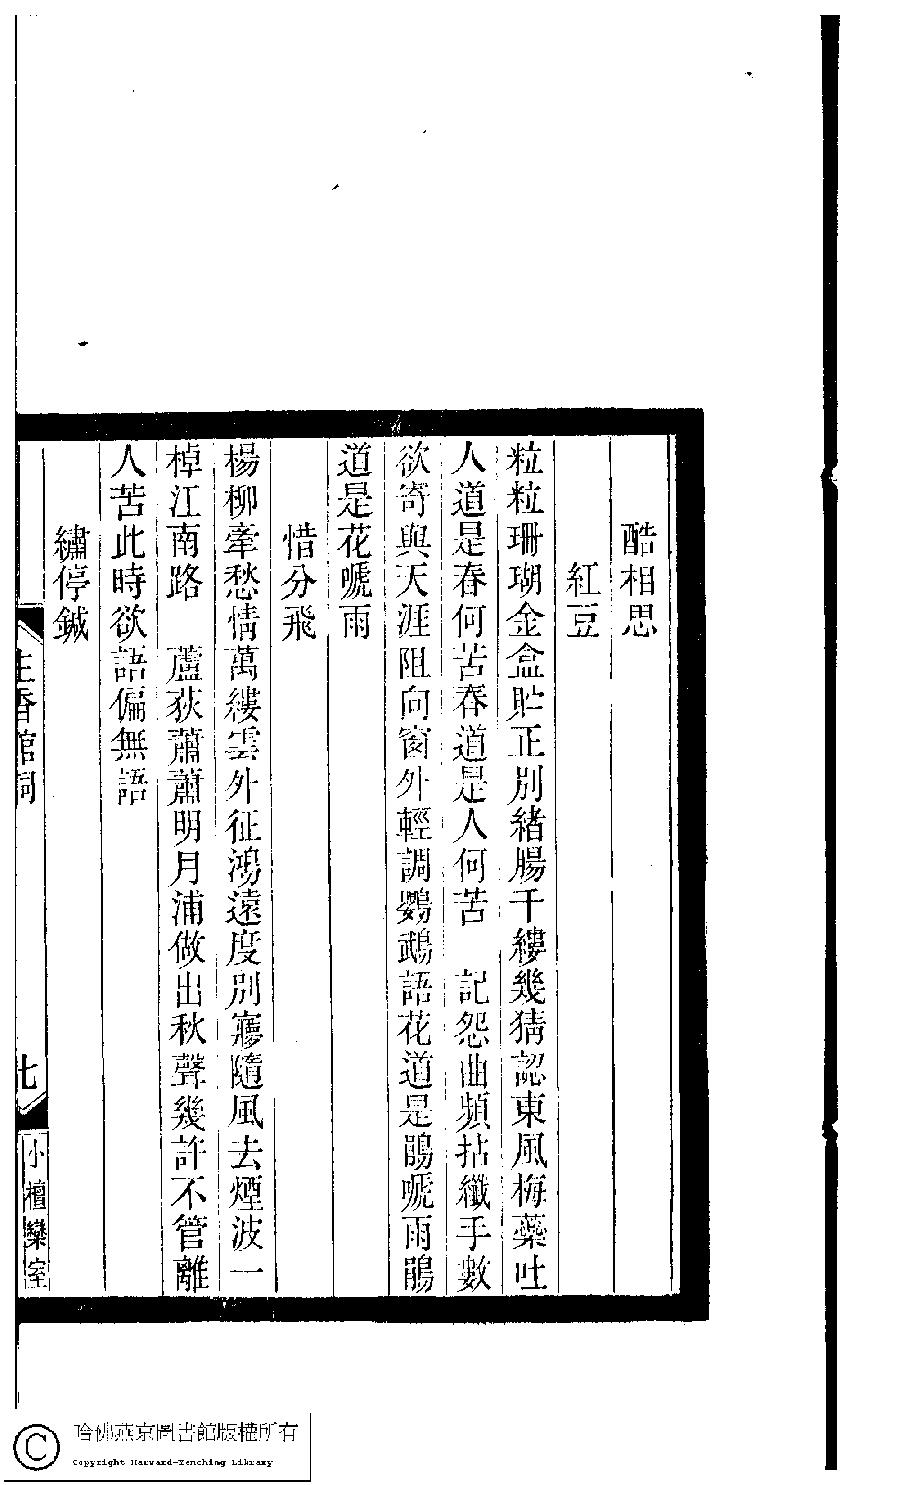 酷相思
紅豆
粒粒珊瑚金盒貯正別緒腸千縷幾猜認東風梅蘂吐
人道是春何苦春道是人何苦　記怨曲頻拈纖手數
欲寄與天涯阻向窗外輕調鸚鵡語花道是鵑嗁雨鵑
道是花嗁雨
惜分飛
楊柳牽愁情萬縷雲外征鴻遠度別寱隨風去煙波一
棹江南路　蘆荻蕭蕭明月浦做出秋聲幾許不管離
人苦此時欲語偏無語
繡停鍼
生香館詞
七
小檀欒室
哈佛燕京圖書館版權所有
Copyright Harvard-Yenching Library